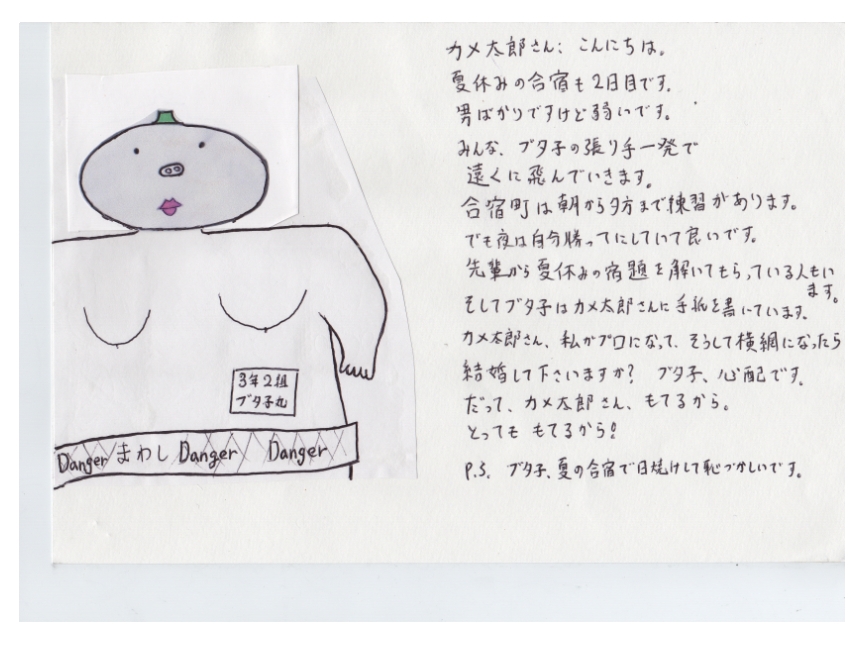 カメ太郎さん:こんにちは。
夏休みの合宿も2日目です。
男ばかりですけど弱いです。
みんな、ブタ子の張り手一発で
遠くに飛んでいきます。
合宿町は朝から夕方まで練習があります。
でも夜は自分勝ってにしていて良いです。
先輩から夏休みの宿題を解いてもらっている人もい
ます。
そしてブタ子はカメ太郎さんに手紙を書いています。
カメ太郎さん、私がプロになって、そうして横綱になったら
結婚して下さいますか? ブタ子、心配です。
だって、カメ太郎さん、もてるから。
とっても もてるから!
P.S. ブタ子、夏の合宿で日焼けして恥づかしいです。
3年2組
ブタ子丸
Danger まわし Danger Danger